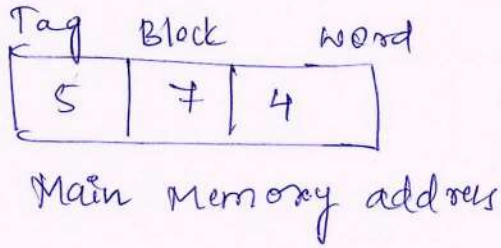 Tag Block word
5 7 4
Main Memory address